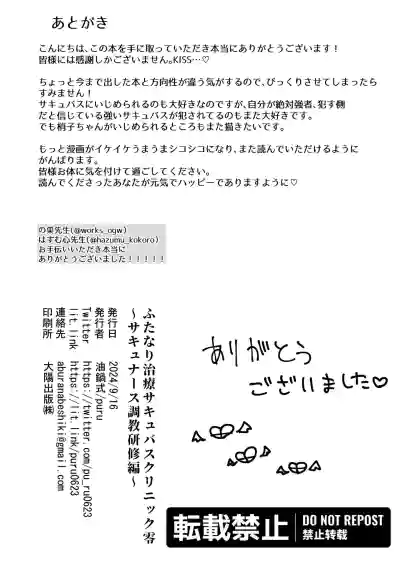 あとがき
こんにちは、この本を手に取っていただき本当にありがとうございます!
皆様には感謝しかございません。KISS…♡
ちょっと今まで出した本と方向性が違う気がするので、びっくりさせてしまったら
すみません!
サキュバスにいじめられるのも大好きなのですが、自分が絶対強者、犯す側
だと信じている強いサキュバスが犯されてるのもまた大好きです。
でも梢子ちゃんがいじめられるところもまた描きたいです。
もっと漫画がイケイケうまうまシコシコになり、また読んでいただけるように
がんばります。
皆様お体に気を付けて過ごしてください。
読んでくださったあなたが元気でハッピーでありますように♡
の果先生(@works_ogw)
はずむ心先生(@hazumu_kokoro)
お手伝いいただき本当に
ありがとうございました!!!!!
ふたなり治療サキュバスクリニック零
~サキュナース調教研修編~
発行日 2024/9/16
発行者 油鍋弐/puru
Twitter https://twitter.com/pu_ru0623
lit.link https://lit.link/puru0623
連絡先 aburanabeshiki@gmail.com
印刷所 大陽出版㈱
ありがとう
ございました♡
転載禁止
DO NOT REPOST
禁止转载